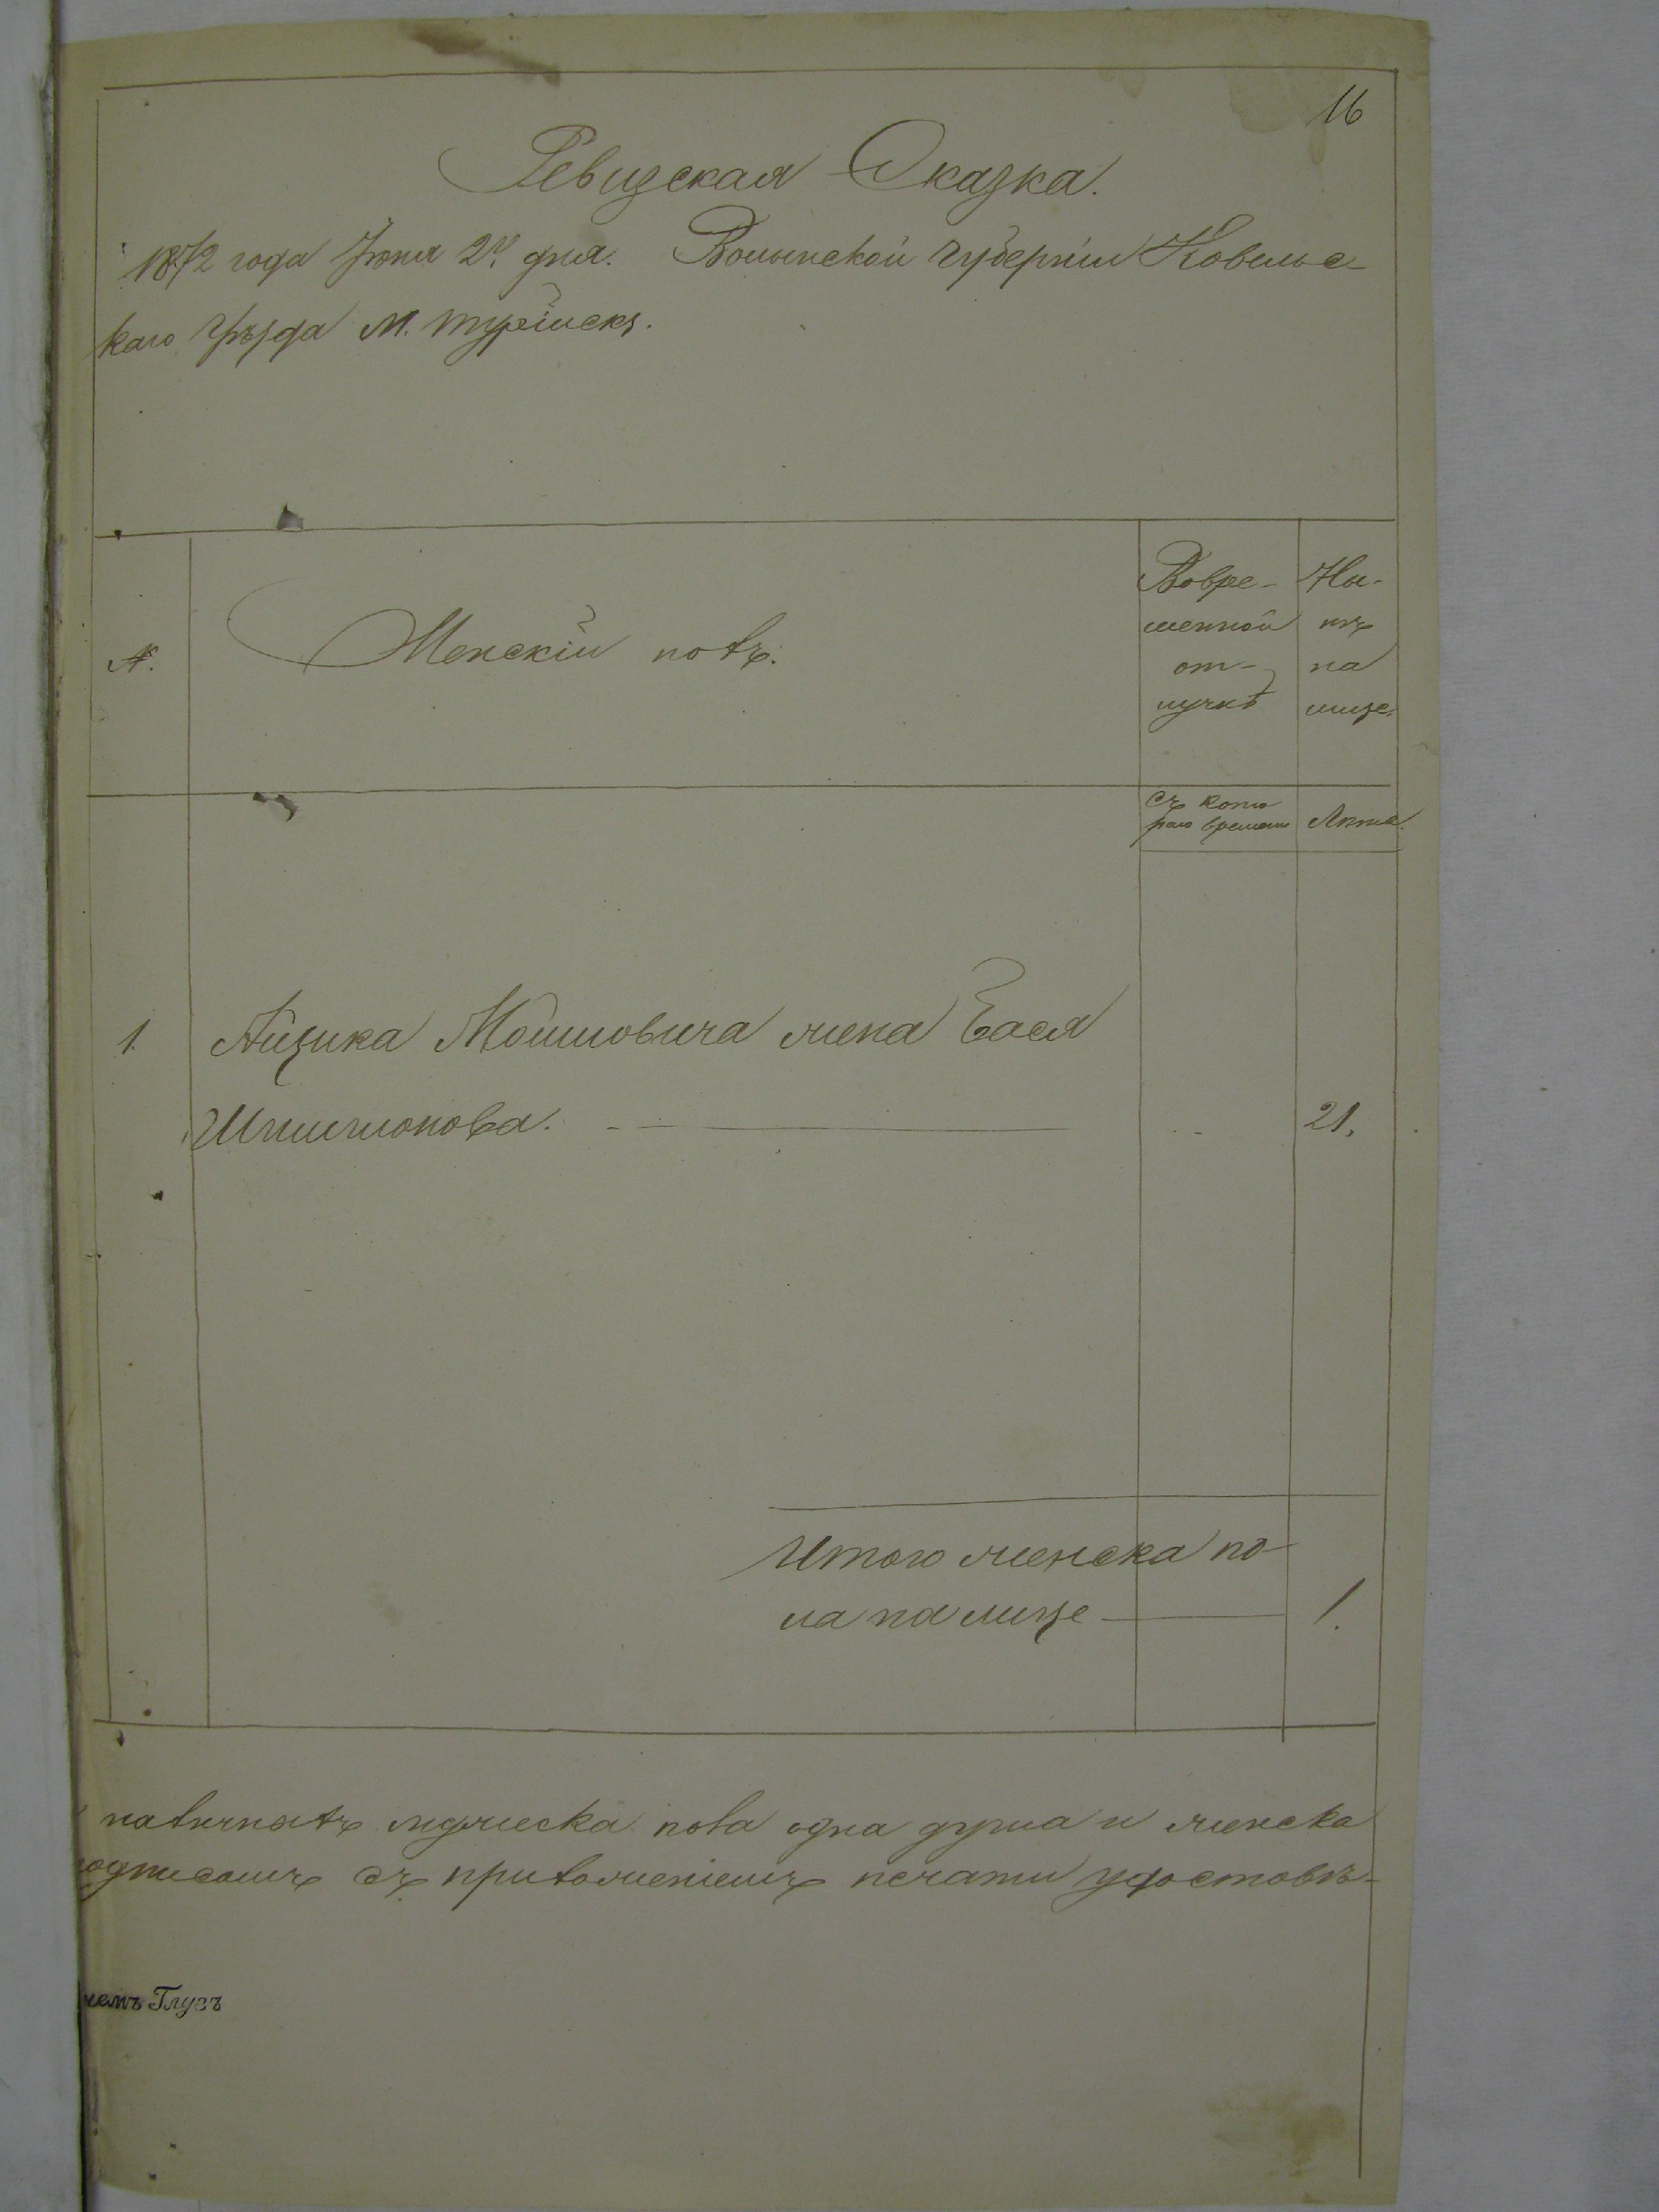 16
Ревизская Сказка.
1872 года Іюня 2ч. дня. Волынской губерніи Ковельс-
каго Уѣзда М. Турійскъ.
№.
Женскій полъ.
Вовре-
менной
от-
лучкѣ
Ны-
нѣ
на
лице.
съ кото
раго времени
Лѣта.
1. Айзика Мошковича жена Бася
Шлиомова. 21.
Итого женска по-
ла на лице 1.
наличныхъ мужеска пола одна душа и женска
одписомъ съ приложеніемъ печати удостовѣ-
Глузъ